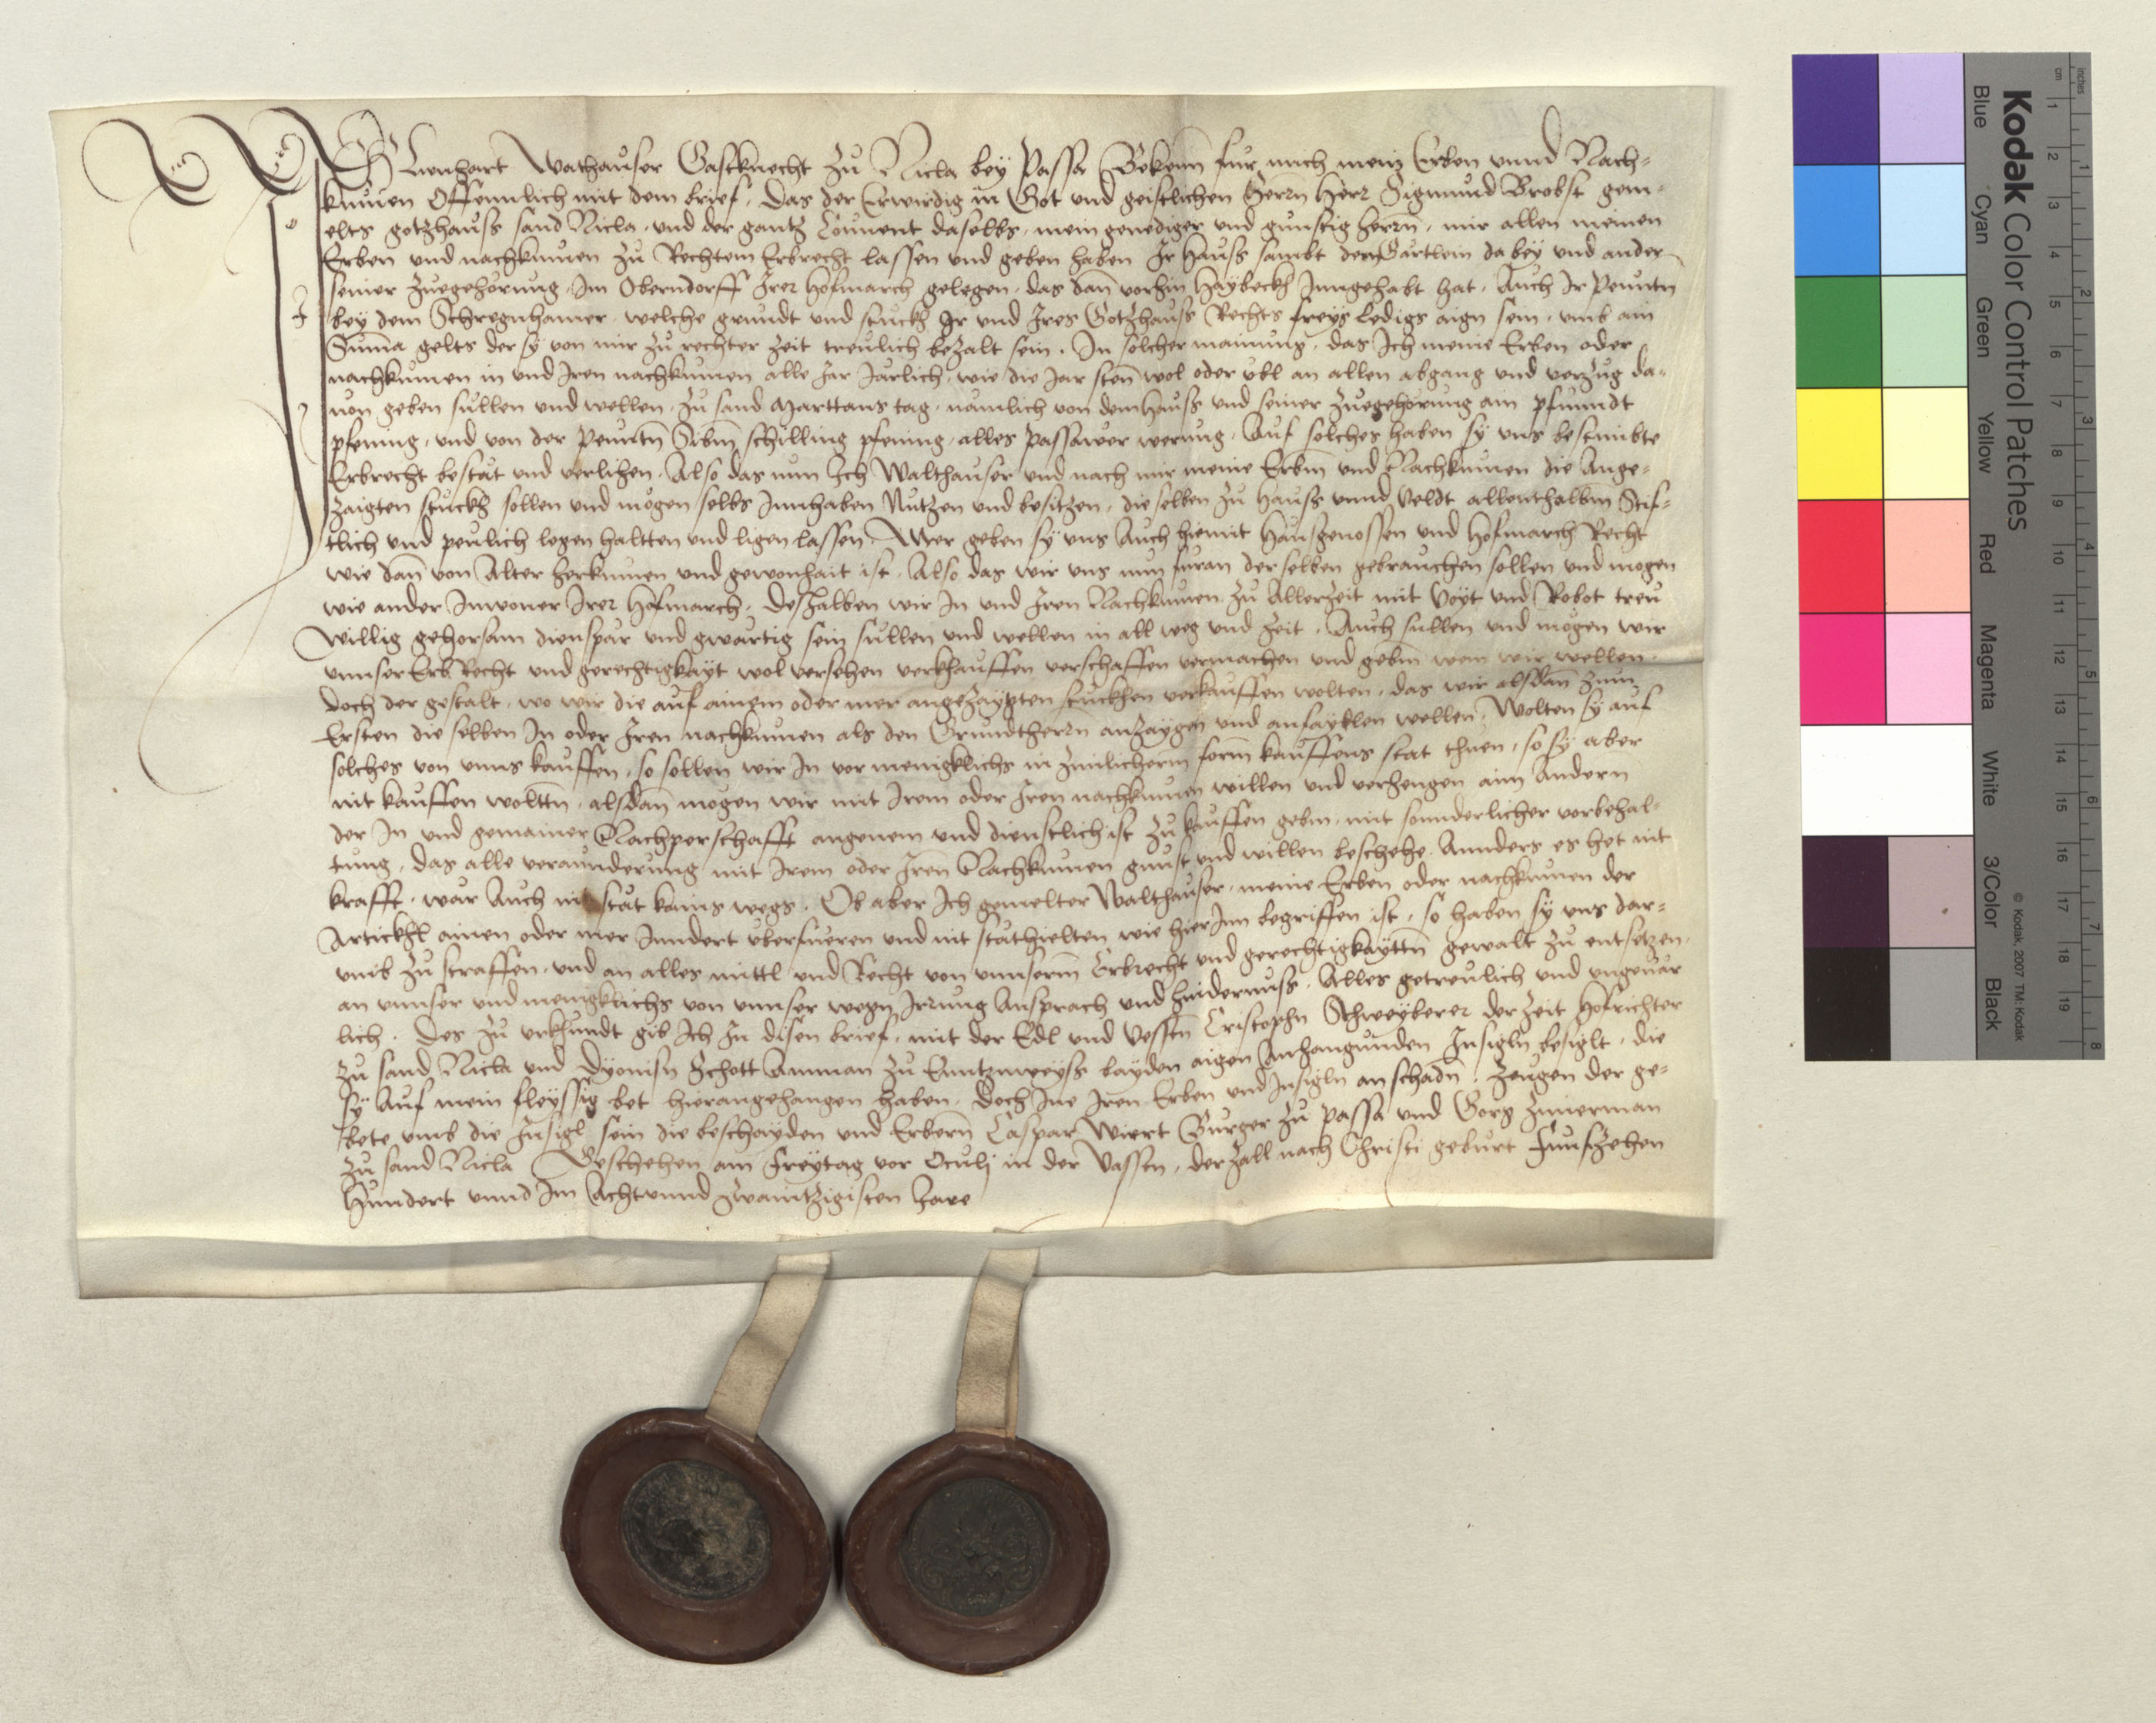 Ich Lienhart Walthauser Gastknecht zu Nicla bey Passa Bekenn fur mich mein Erben unnd Nach-
kumen Offennlich mit dem brief, Das der Erwirdig in Got und geistlichen Herrn Herr Sigmund Brobst gem-
elts gotzhauss sand Nicla, und der gantz Convent daselbs, mein genediger und gunstig herrn, mir allen meinen
Erben und nachkumen zu Rechtem Erbrecht lassen und geben haben Ir Hauss sambt dem Gärtlein da bey und ander
seiner zuegehörung, Im Oberndorff Irer Hofmarch gelegen, das dann vorhin Haybeckh Inngehabt hat, Auch Ir Peuntn
bey dem Schregnhamer, welche grundt und stuckh Ir und Ires Gotzhauss Rechts freys ledigs aign sein, umb ain
Summa gelts der sy von mir zu rechter zeit treulich bezalt sein, In solcher mainung, das Ich meine Erben oder
nachkumen in und Iren nachkumen alle Jar Järlich, wie die Jar sten wol oder übl an allen abgang und verzug da-
von geben sullen und wellen, zu sand Marttans tag, nämlich von dem Hauss und seiner zuegehörung ain pfunndt
pfening, und von der Peuntn Sibm schilling pfening, alles Passawer werung, Auf solches haben sy uns bestimbte
Erbrecht bestät und verlihen, Also das nun Ich Walthauser und nach mir meine Erbm und Nachkumen die Ange-
zaigten stuckh sollen und mögen selbs Innhaben Nutzen und besitzen, die selben zu Hauss unnd Veldt allenthalbm Stif-
tlich und peulich legen haltten und ligen lassen, Mer geben sy uns Auch hiemit Hausgenossen und Hofmarch Recht
wie dan von Alter herkumen und gewonhait ist, Also das wir uns nun furan der selben gebrauchen sollen und mogen
wie ander Inwoner Irer Hofmarch, Deshalben wir In und Iren Nachkumen zu Allerzeit mit Voyt und Robot treu
willig gehorsam dienspar und gwärtig sein sullen und wellen in all weg und zeit, Auch sullen und mögen wir
unnser Erb Recht und gerechtigkayt wol versehen verkhauffen verschaffen vermachen und gebm wem wir wellen,
doch der gestalt, wo wir die auf ainem oder mer angezaygten stuckhen verkauffen wolten, das wir alsdann zum
Ersten die selben In oder Iren nachkumen als den Grundtherrn anzaygen und anfayklen wellen, Wolten sy auf
solches von unns kauffen, so sollen wir In vor menigklichs in zimlicherm form kauffens stat thuen, so sy aber
nit kauffen woltn, alsdann mogen wir mit Irem oder Iren nachkumen willen und verhengen aim Andern
der In und gemainer Nachperschafft angenem und dienstlich ist zu kauffen gebm, mit sonnderlicher vorbehal-
tung, das alle verannderung mit Irem oder Iren Nachkumen gunst und willen beschehe, Annders es het nit
krafft, wär Auch nit stät kains wegs, Ob aber Ich gemelter Walthauser, meine Erben oder nachkumen der
Artickhl ainen oder mer Inndert überfueren und nit stät hielten wie hier Inn begriffen ist, so haben sy uns dar-
umb zu straffen, und an alles mittl und Recht von unnserm Erbrecht und gerechtigkayttn gewalt zu entsetzen,
an unnser und menigklichs von unnser wegn Irrung Ansprach und hindernuss, Alles getreulich und ungevär
lich, Des zu urkhundt gib Ich In disen brief, mit der Edl und Vesstn Cristophn Schweyberer der zeit Hofrichter
zu sand Nicla und Dyonisn Schott Amman zu Enntzweyss bayden aigen Anhangunden Insigln besiglt, die
sy Auf mein fleyssig bet hierangehangen haben, doch Ine Iren Erben und Insigln an schadn, Zeugen der ge-
bete umb die Insigl sein die beschayden und Erbern Caspar Wiert Burger zu Passa und Gorg Zimerman
zu sand Nicla Geschehen am Freytag vor Oculj in der Vassten, der zall nach Christi geburt Funfzehen
Hundert unnd Im Achtunnd zwaintzigisten Jare
Kodak Color Control Patches
Blue Cyan Green Yellow Red Magenta White 3/Color Black
© Kodak, 2007 TM: Kodak
cm 1 2 3 4 5 6 7 8 9 10 11 12 13 14 15 16 17 18 19
inches 1 2 3 4 5 6 7 8